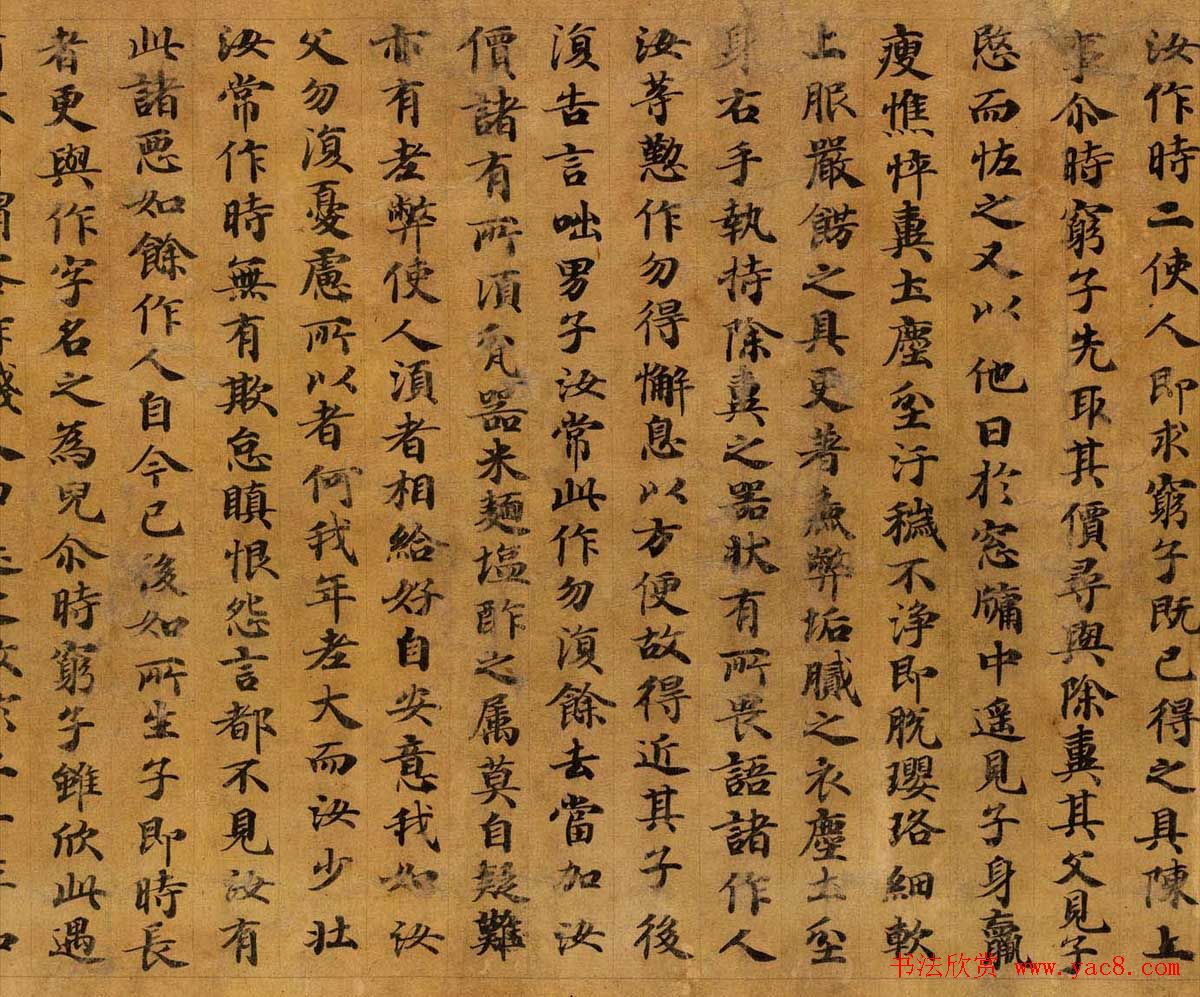 汝作時二使人即求窮子既已得之具陳上
事尒時窮子先取其價尋與除糞其父見子
愍而恠之又以他日於窓牖中遥見子身羸
瘦憔悴糞土塵坌汙穢不淨即脫瓔珞細軟
上服嚴餝之具更著麁弊垢膩之衣塵土坌
身右手執持除糞之器狀有所畏語諸作人
汝等懃作勿得懈息以方便故得近其子後
復告言咄男子汝常此作勿復餘去當加汝
價諸有所須瓫器米麺塩酢之属莫自疑難
亦有老弊使人須者相給好自安意我如汝
父勿復憂慮所以者何我年老大而汝少壯
汝常作時無有欺怠瞋恨怨言都不見汝有
此諸惡如餘作人自今已後如所生子即時長
者更與作字名之為兒尒時窮子雖欣此遇
书法欣赏 www.yac8.com